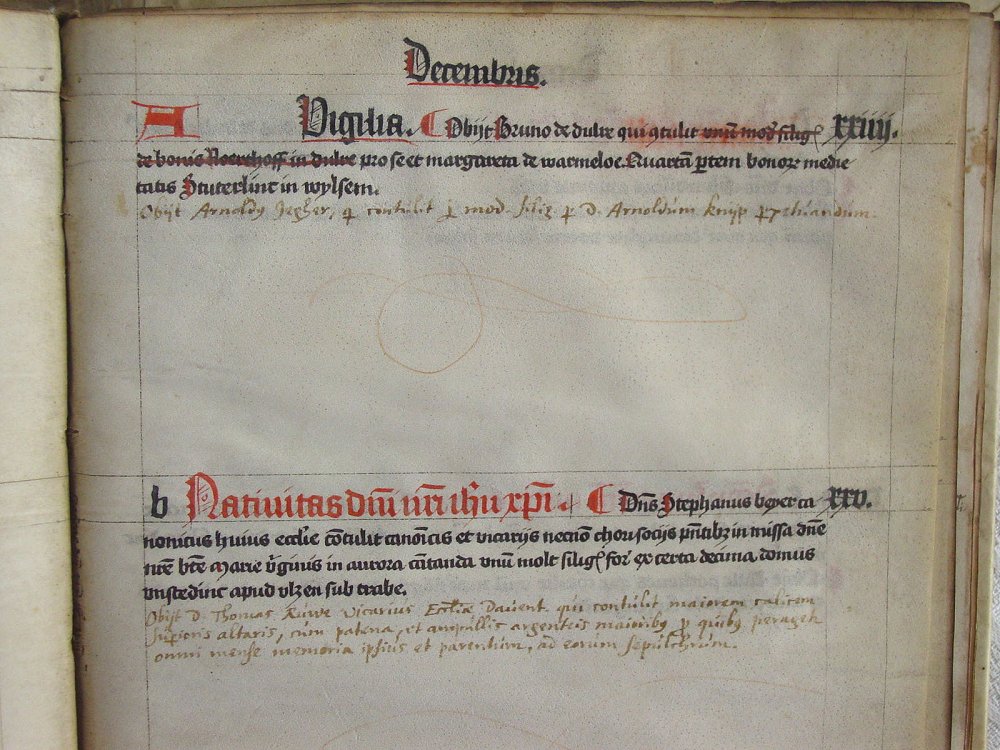 Decembris.
A Vigilia. Obijt Bruno de dulre qui 9tulit unū mod' silig' xxiiij.
de bonis Roerthoff in dulre pro se et margareta de warmeloe. Nuartā ptem bonor medie
tatis Stuterlinc in wylsem.
Obijt Arnold9 Jegher, q contulit mod. silig p D. Arnoldum knijp
b Nativitas dni nri ihu xpi. Dns Stephanus beyer ca xxv.
nonicus huius ecclie cōtulit canōicis et vicarijs necnō chorisocijs pntibz in missa dne
nre bte Marie vginis in aurora cātanda unū molt silig' for' ex certa decima domus
unstedinc apud ulzen sub trabe.
Obijt D. Thomas Ruwe vicarius Eccliæ Davent. qui contulit maiorem calicem
supioris altaris, cum patena, et ampullis argenteis maiorib9 p quib9 peraget
omni mense memoria ipsius et parentum, ad eorum sepulchrum.